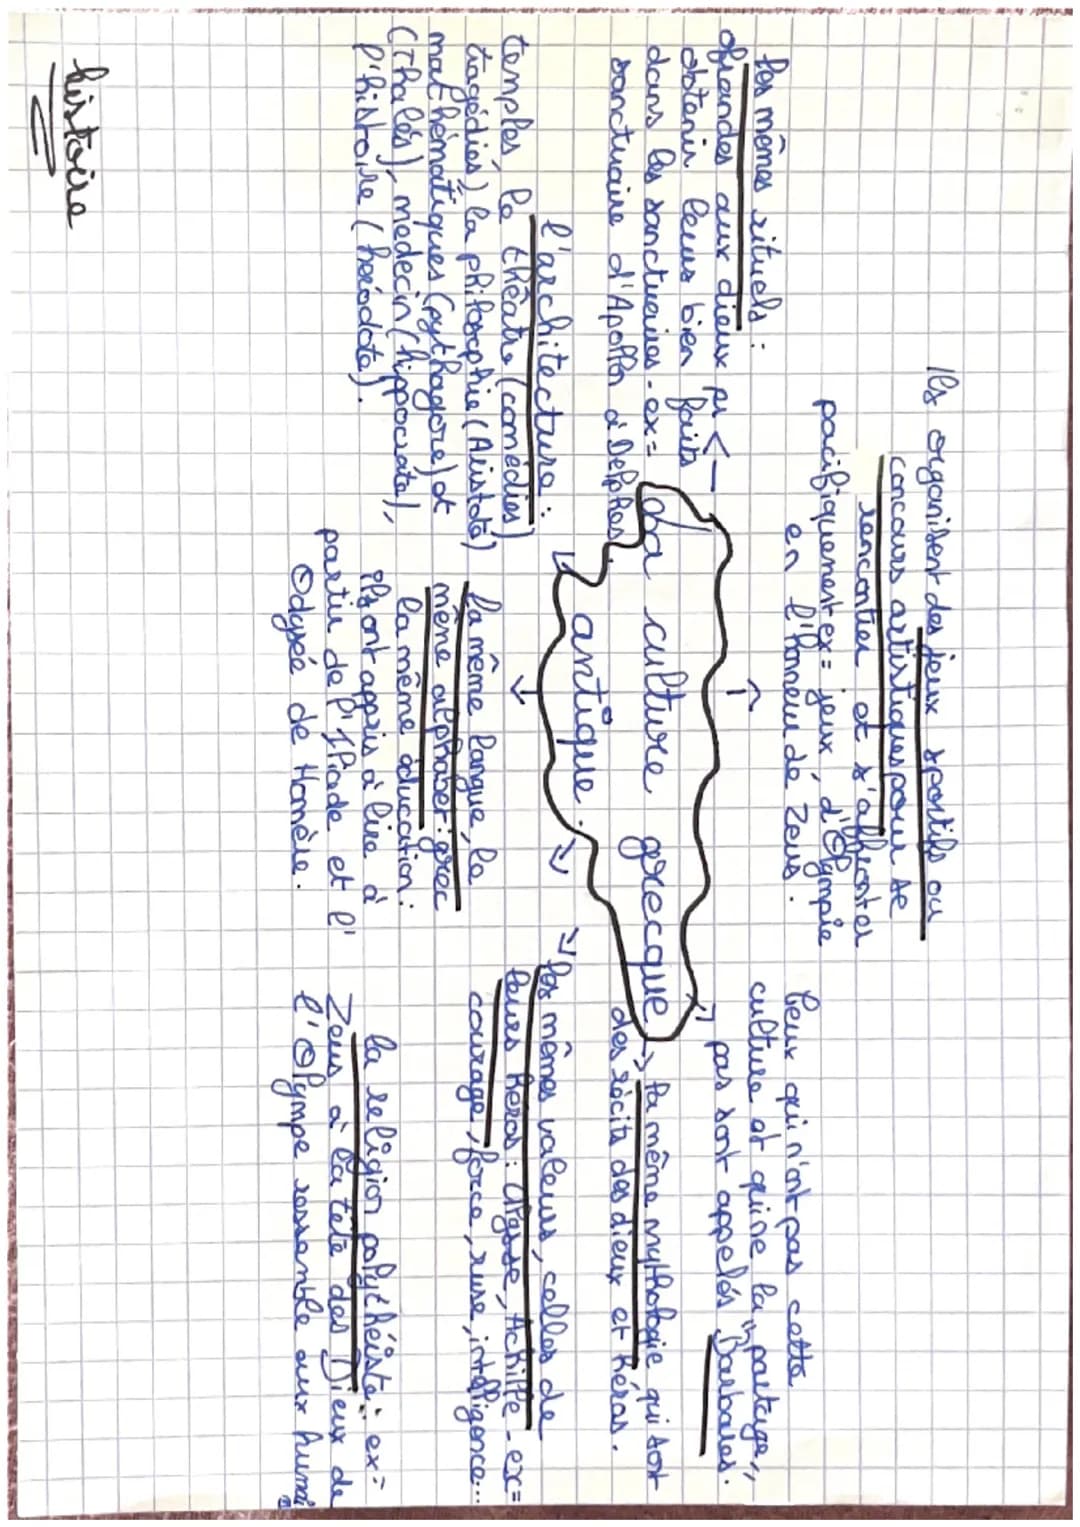 histoire
Ils organisent des jeux sportifs ou
concours artistiques pour se
rencontrer et s'affronter
pacifiquement ex = jeux d'Olympie
en l'honneur de Zeus.
les mêmes rituels :
ofrandes aux dieux pr
obtenir leurs bien faits
dans les sanctuaires - ex =
sanctuaire d'Apollon à Delphes.
La culture grecque
antique.
Ceux qui n'ont pas cette
culture et qui ne la "partage"
pas sont appelés Barbares.
la même mythologie qui sont
des récits des dieux et héros.
les mêmes valeurs, celles de
leurs héros : Ulysse, Achille - ex =
courage, force, ruse, intelligence...
l'architecture :
temples, le théâtre (comédies)
tragédies) la philosophie (Aristote)
mathématiques (pythagore) et
(Thalès), médecin (hippocrate),
l'histoire (hérodote).
la même langue, le
même alphabet : grec
la même éducation :
ils ont appris à lire à
partir de l'Iliade et l'
Odysée de Homère.
la religion polythéiste : ex =
Zeus à la tête des Dieux de
l'Olympe ressemble aux humai